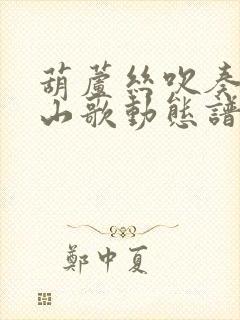 葫蘆絲吹奏
山歌動態譜
鄭中夏